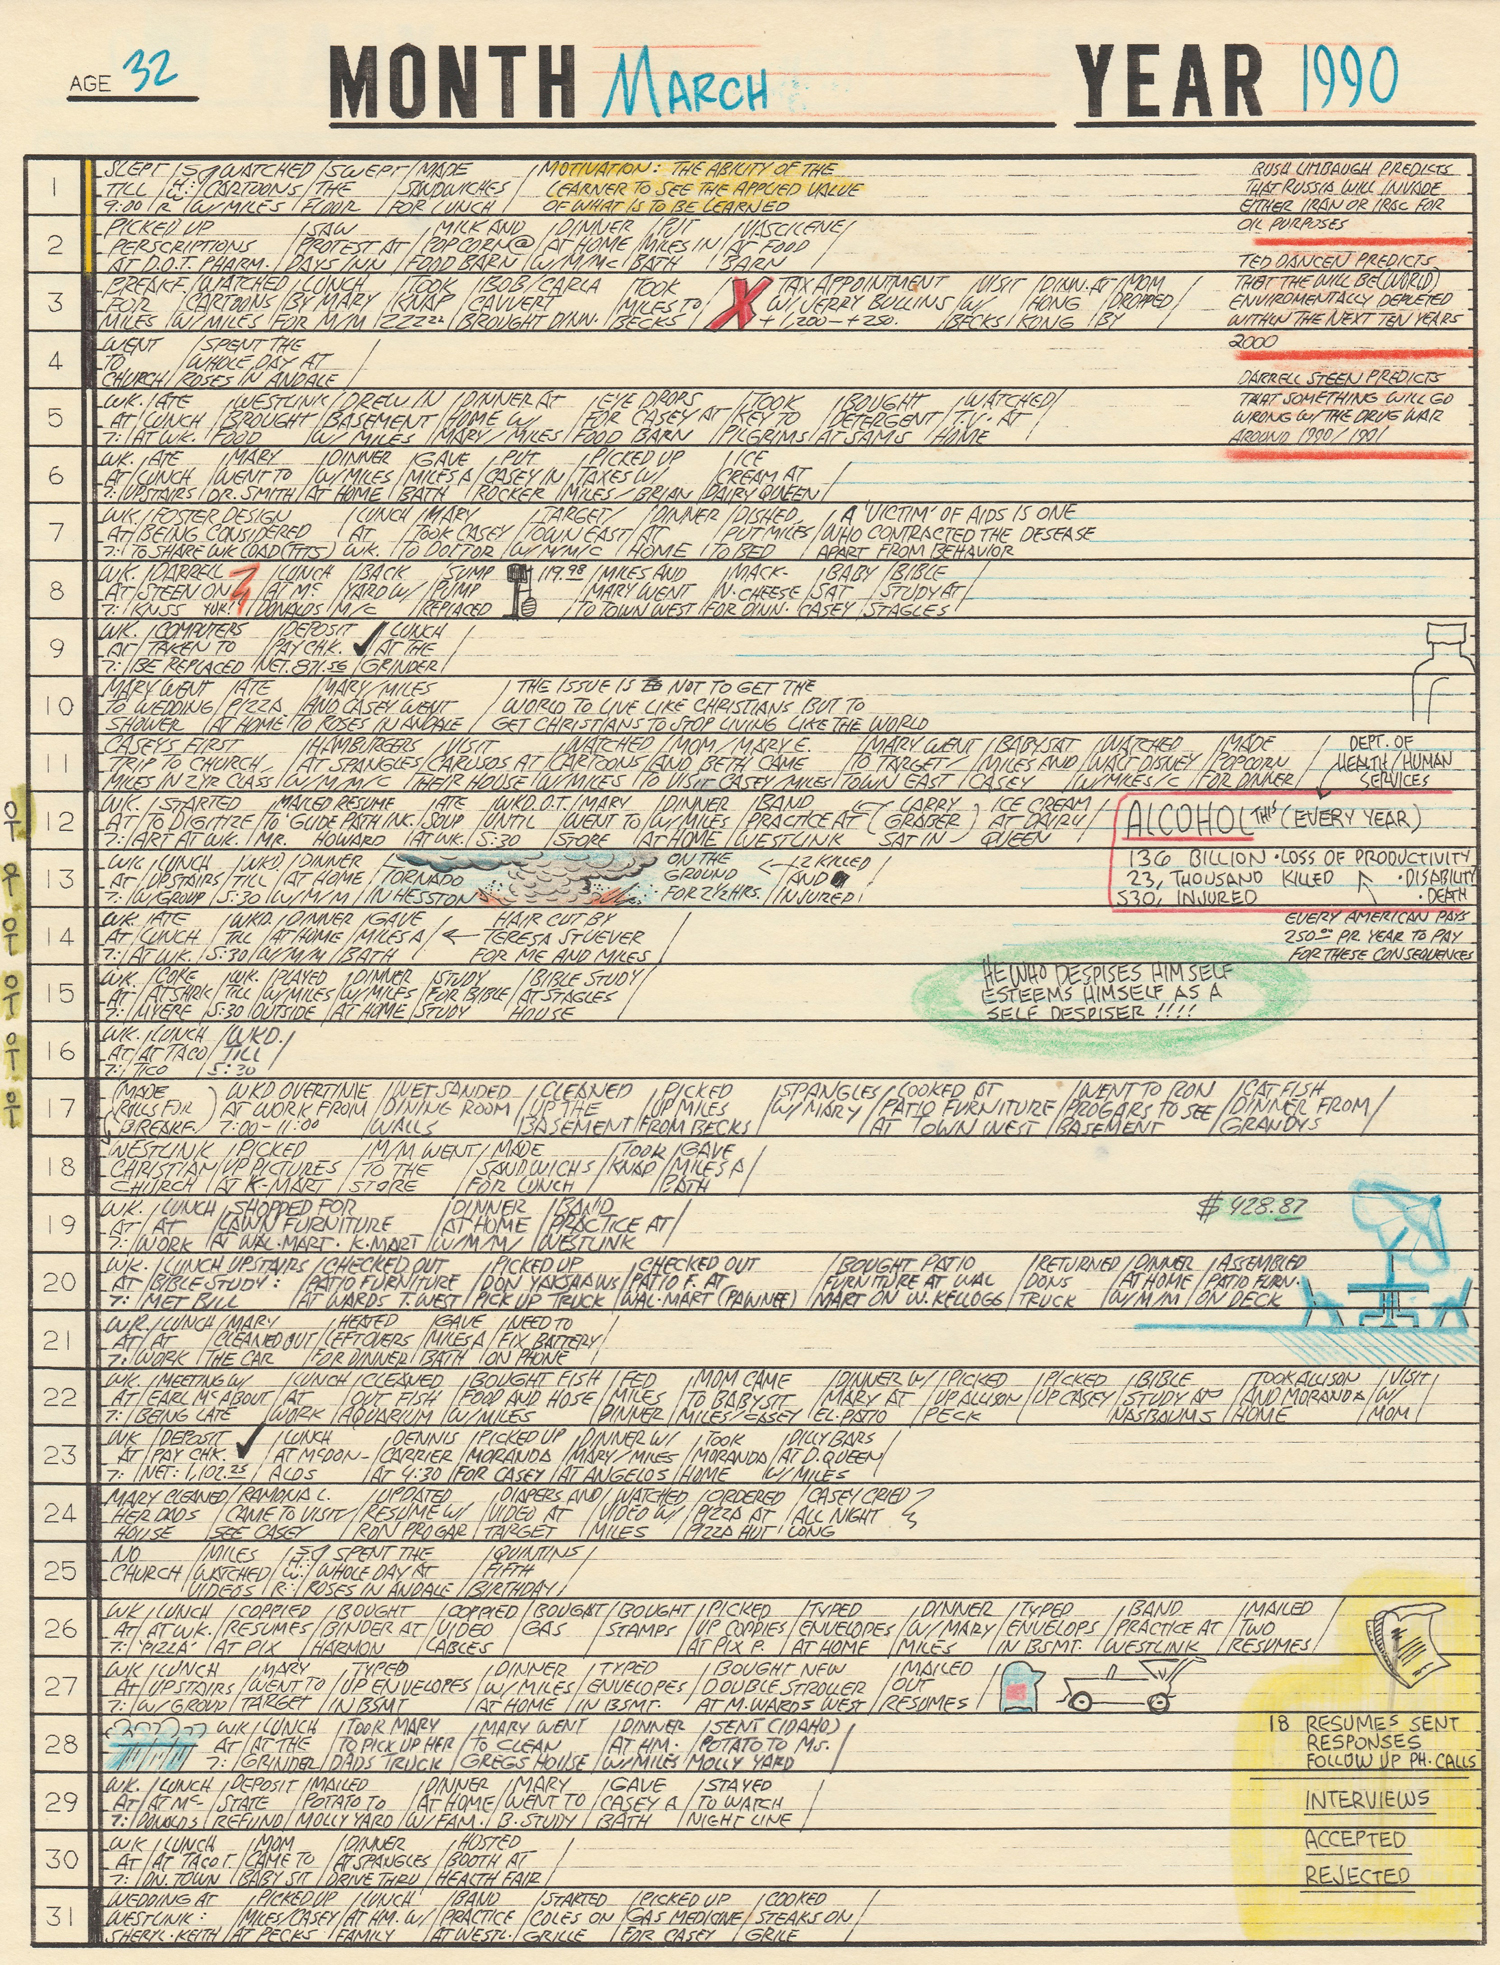 AGE 32 MONTH MARCH YEAR 1990
1
SLEPT / WATCHED / SWEPT / MADE / MOTIVATION: THE ABILITY OF THE
TILL / CARTOONS / THE / SANDWICHES / LEARNER TO SEE THE APPLIED VALUE
9:00 / W/MILES / FLOOR / FOR LUNCH / OF WHAT IS TO BE LEARNED
2
PICKED UP / SAW / MILK AND / DINNER / PUT / VASCILENE /
PERSCRIPTIONS / PROTEST AT / POPCORN @ / AT HOME / MILES IN / AT FOOD
AT D.O.T. PHARM. / DAYS INN / FOOD BARN / W/M/MC / BATH / BARN
3
BREAKF. / WATCHED / LUNCH / TOOK / BOB/CARLA / TOOK / X / TAX APPOINTMENT / VISIT / DINN. AT / MOM
FOR / CARTOONS / BY MARY / KNAP / CAVVERT / MILES TO / W/ JERRY BULLINS / W/ / HONG / DROPPED
MILES / W/MILES / FOR M/M / ZZZZZ / BROUGHT DINN. / BECKS / +1,200 - +250. / BECKS / KONG / BY
4
WENT / SPENT THE
TO / WHOLE DAY AT
CHURCH / ROSES IN ANDALE
5
WK. / ATE / WESTLINK / DREW IN / DINNER AT / EYE DROPS / TOOK / BOUGHT / WATCHED
AT / LUNCH / BROUGHT / BASEMENT / HOME W/ / FOR CASEY AT / KEY TO / DETERGENT / T.V. AT
7: / AT WK. / FOOD / W/MILES / MARY/MILES / FOOD BARN / PILGRIMS / AT SAMS / HOME
6
WK. / ATE / MARY / DINNER / GAVE / PUT / PICKED UP / ICE
AT / LUNCH / WENT TO / W/MILES / MILES A / CASEY IN / TAXES W/ / CREAM AT
7: / UPSTAIRS / DR. SMITH / AT HOME / BATH / ROCKER / MILES/BRIAN / DAIRY QUEEN
7
WK. / FOSTER DESIGN / LUNCH / MARY / TARGET / DINNER / DISHED / A 'VICTIM' OF AIDS IS ONE
AT / BEING CONSIDERED / AT / TOOK CASEY / TOWN EAST / AT / PUT MILES / WHO CONTRACTED THE DESEASE
7: / TO SHARE WK LOAD (TFTS) / WK. / TO DOCTOR / W/M/M/C / HOME / TO BED / APART FROM BEHAVIOR
8
WK. / DARRELL / LUNCH / BACK / SUMP / 119.98 / MILES AND / MACK- / BABY / BIBLE
AT / STEEN ON / AT MC / YARD W/ / PUMP / MARY WENT / N-CHEESE / SAT / STUDY AT
7: / KNSS YUK!! / DONALDS / M/C / REPLACED / TO TOWN WEST / FOR DINN. / CASEY / STAGLES
9
WK. / COMPUTERS / DEPOSIT / LUNCH
AT / TAKEN TO / PAY CHK. ✓ / AT THE
7: / BE REPLACED / NET. 871.56 / GRINDER
10
MARY WENT / ATE / MARY/MILES / THE ISSUE IS NOT TO GET THE
TO WEDDING / PIZZA / AND CASEY WENT / WORLD TO LIVE LIKE CHRISTIANS BUT TO
SHOWER / AT HOME / TO ROSES IN ANDALE / GET CHRISTIANS TO STOP LIVING LIKE THE WORLD
11
CASEYS FIRST / HAMBURGERS / VISIT / WATCHED / MOM/MARY E. / MARY WENT / BABYSAT / WATCHED / MADE
TRIP TO CHURCH / AT SPANGLES / CARUSOS AT / CARTOONS / AND BETH CAME / TO TARGET / MILES AND / WALT DISNEY / POPCORN
MILES IN 2 YR CLASS / W/M/M/C / THEIR HOUSE / W/MILES / TO VISIT CASEY/MILES / TOWN EAST / CASEY / W/MILES/C / FOR DINNER
12
WK. / STARTED / MAILED RESUME / ATE / WKD. O.T. / MARY / DINNER / BAND / (LARRY / ICE CREAM
AT / TO DIGITIZE / TO GLIDE PATH INC. / SOUP / UNTIL / WENT TO / W/MILES / PRACTICE AT / GRABER) / AT DAIRY
7: / ART AT WK. / MR. HOWARD / AT WK. / 5:30 / STORE / AT HOME / WESTLINK / SAT IN / QUEEN
13
WK. / LUNCH / WKD / DINNER / TORNADO / ON THE / 2 KILLED
AT / UPSTAIRS / TILL / AT HOME / IN HESSTON / GROUND / AND
7: / W/GROUP / 5:30 / W/M/M / FOR 2½ HRS. / INJURED!
14
WK. / ATE / WKD. / DINNER / GAVE / HAIR CUT BY
AT / LUNCH / TILL / AT HOME / MILES A / ← TERESA STUEVER
7: / AT WK. / 5:30 / W/M/M / BATH / FOR ME AND MILES
15
WK. / COKE / WK. / PLAYED / DINNER / STUDY / BIBLE STUDY
AT / AT SHRIK / TILL / W/MILES / W/MILES / FOR BIBLE / AT STAGLES
7: / MYERE / 5:30 / OUTSIDE / AT HOME / STUDY / HOUSE
16
WK. / LUNCH / WKD.
AT / AT TACO / TILL
7: / TICO / 5:30
17
(MADE / WKD OVERTIME / WET SANDED / CLEANED / PICKED / SPANGLES / COOKED AT / WENT TO RON / CATFISH
ROLLS FOR / AT WORK FROM / DINING ROOM / UP THE / UP MILES / W/MARY / PATIO FURNITURE / PROGARS TO SEE / DINNER FROM
BREAKF.) / 7:00-11:00 / WALLS / BASEMENT / FROM BECKS / AT TOWN WEST / BASEMENT / GRANDYS
18
WESTLINK / PICKED / M/M WENT / MADE / TOOK / GAVE
CHRISTIAN / UP PICTURES / TO THE / SANDWICHS / KNAP / MILES A
CHURCH / AT K-MART / STORE / FOR LUNCH / BATH
19
WK. / LUNCH / SHOPPED FOR / DINNER / BAND
AT / AT / LAWN FURNITURE / AT HOME / PRACTICE AT
7: / WORK / AT WAL-MART. K-MART / W/M/M / WESTLINK
20
WK. / LUNCH UPSTAIRS / CHECKED OUT / PICKED UP / CHECKED OUT / BOUGHT PATIO / RETURNED / DINNER / ASSEMBLED
AT / BIBLE STUDY: / PATIO FURNITURE / DON YAKSHAWS / PATIO F. AT / FURNITURE AT WAL / DONS / AT HOME / PATIO FURN.
7: / MET BILL / AT WARDS T. WEST / PICK UP TRUCK / WAL-MART (PAWNEE) / MART ON W. KELLOGG / TRUCK / W/M/M / ON DECK
21
WK. / LUNCH / MARY / HEATED / GAVE / NEED TO
AT / AT / CLEANED OUT / LEFTOVERS / MILES A / FIX BATTERY
7: / WORK / THE CAR / FOR DINNER / BATH / ON PHONE
22
WK. / MEETING W/ / LUNCH / CLEANED / BOUGHT FISH / FED / MOM CAME / DINNER W/ / PICKED / PICKED / BIBLE / TOOK ALLISON / VISIT
AT / EARL MC ABOUT / AT / OUT FISH / FOOD AND HOSE / MILES / TO BABYSIT / MARY AT / UP ALLISON / UP CASEY / STUDY AT / AND MORANDA / W/
7: / BEING LATE / WORK / AQUARIUM / W/MILES / DINNER / MILES/CASEY / EL-PATIO / PECK / NASBAUMS / HOME / MOM
23
WK / DEPOSIT / LUNCH / DENNIS / PICKED UP / DINNER W/ / TOOK / DILLY BARS
AT / PAY CHK. ✓ / AT MCDON- / CARRIER / MORANDA / MARY/MILES / MORANDA / AT D. QUEEN
7: / NET: 1,102.25 / ALDS / AT 4:30 / FOR CASEY / AT ANGELOS / HOME / W/MILES
24
MARY CLEANED / RAMONA L. / UPDATED / DIAPERS AND / WATCHED / ORDERED / CASEY CRIED
HER DADS / CAME TO VISIT / RESUME W/ / VIDEO AT / VIDEO W/ / PIZZA AT / ALL NIGHT
HOUSE / SEE CASEY / RON PROGAR / TARGET / MILES / PIZZA HUT / LONG
25
NO / MILES / SPENT THE / QUINTINS
CHURCH / WATCHED / WHOLE DAY AT / FIFTH
VIDEOS / ROSES IN ANDALE / BIRTHDAY
26
WK / LUNCH / COPPIED / BOUGHT / COPPIED / BOUGAT / BOUGHT / PICKED / TYPED / DINNER / TYPED / BAND / MAILED
AT / AT WK. / RESUMES / BINDER AT / VIDEO / GAS / STAMPS / UP COPPIES / ENVELOPES / W/MARY / ENVELOPS / PRACTICE AT / TWO
7: / 'PIZZA' / AT PIX / HARMON / LABLES / AT PIX P. / AT HOME / MILES / IN BSMT. / WESTLINK / RESUMES
27
WK / LUNCH / MARY / TYPED / DINNER / TYPED / BOUGHT NEW / MAILED
AT / UPSTAIRS / WENT TO / UP ENVELOPES / W/MILES / ENVELOPES / DOUBLE STROLLER / OUT
7: / W/GROUP / TARGET / IN BSMT / AT HOME / IN BSMT. / AT M. WARDS WEST / RESUMES
28
WK / LUNCH / TOOK MARY / MARY WENT / DINNER / SENT (IDAHO)
AT / AT THE / TO PICK UP HER / TO CLEAN / AT HM. / POTATO TO MS.
7: / GRINDER / DADS TRUCK / GREGS HOUSE / W/MILES / MOLLY YARD
29
WK. / LUNCH / DEPOSIT / MAILED / DINNER / MARY / GAVE / STAYED
AT / AT MC- / STATE / POTATO TO / AT HOME / WENT TO / CASEY A / TO WATCH
7: / DONALDS / REFUND / MOLLY YARD / W/FAM. / B. STUDY / BATH / NIGHT LINE
30
WK / LUNCH / MOM / DINNER / HOSTED
AT / AT TACO T. / CAME TO / AT SPANGLES / BOOTH AT
7: / DN. TOWN / BABY SIT / DRIVE THRU / HEALTH FAIR
31
WEDDING AT / PICKED UP / LUNCH / BAND / STARTED / PICKED UP / COOKED
WESTLINK: / MILES/CASEY / AT HM. W/ / PRACTICE / COLES ON / GAS MEDICINE / STEAKS ON
SHERYL-KEITH / AT PECKS / FAMILY / AT WESTL. / GRILLE / FOR CASEY / GRILE
RUSH LIMBAUGH PREDICTS
THAT RUSSIA WILL INVADE
EITHER IRAN OR IRAC FOR
OIL PURPOSES
TED DANCEN PREDICTS
THAT THE WILL BE (WORLD)
ENVIROMENTALLY DEPLETED
WITHIN THE NEXT TEN YEARS
2000
DARRELL STEEN PREDICTS
THAT SOMETHING WILL GO
WRONG W/ THE DRUG WAR
AROUND 1990/1991
DEPT. OF
HEALTH/HUMAN
SERVICES
ALCOHOL THIS (EVERY YEAR)
136 BILLION • LOSS OF PRODUCTIVITY
23, THOUSAND KILLED • DISABILITY
530, INJURED • DEATH
EVERY AMERICAN PAYS
250.00 PR YEAR TO PAY
FOR THESE CONSEQUENCES
HE WHO DESPISES HIMSELF
ESTEEMS HIMSELF AS A
SELF DESPISER !!!!
$428.87
18 RESUMES SENT
RESPONSES
FOLLOW UP PH. CALLS
INTERVIEWS
ACCEPTED
REJECTED
OT
OT
OT
OT
OT
OT